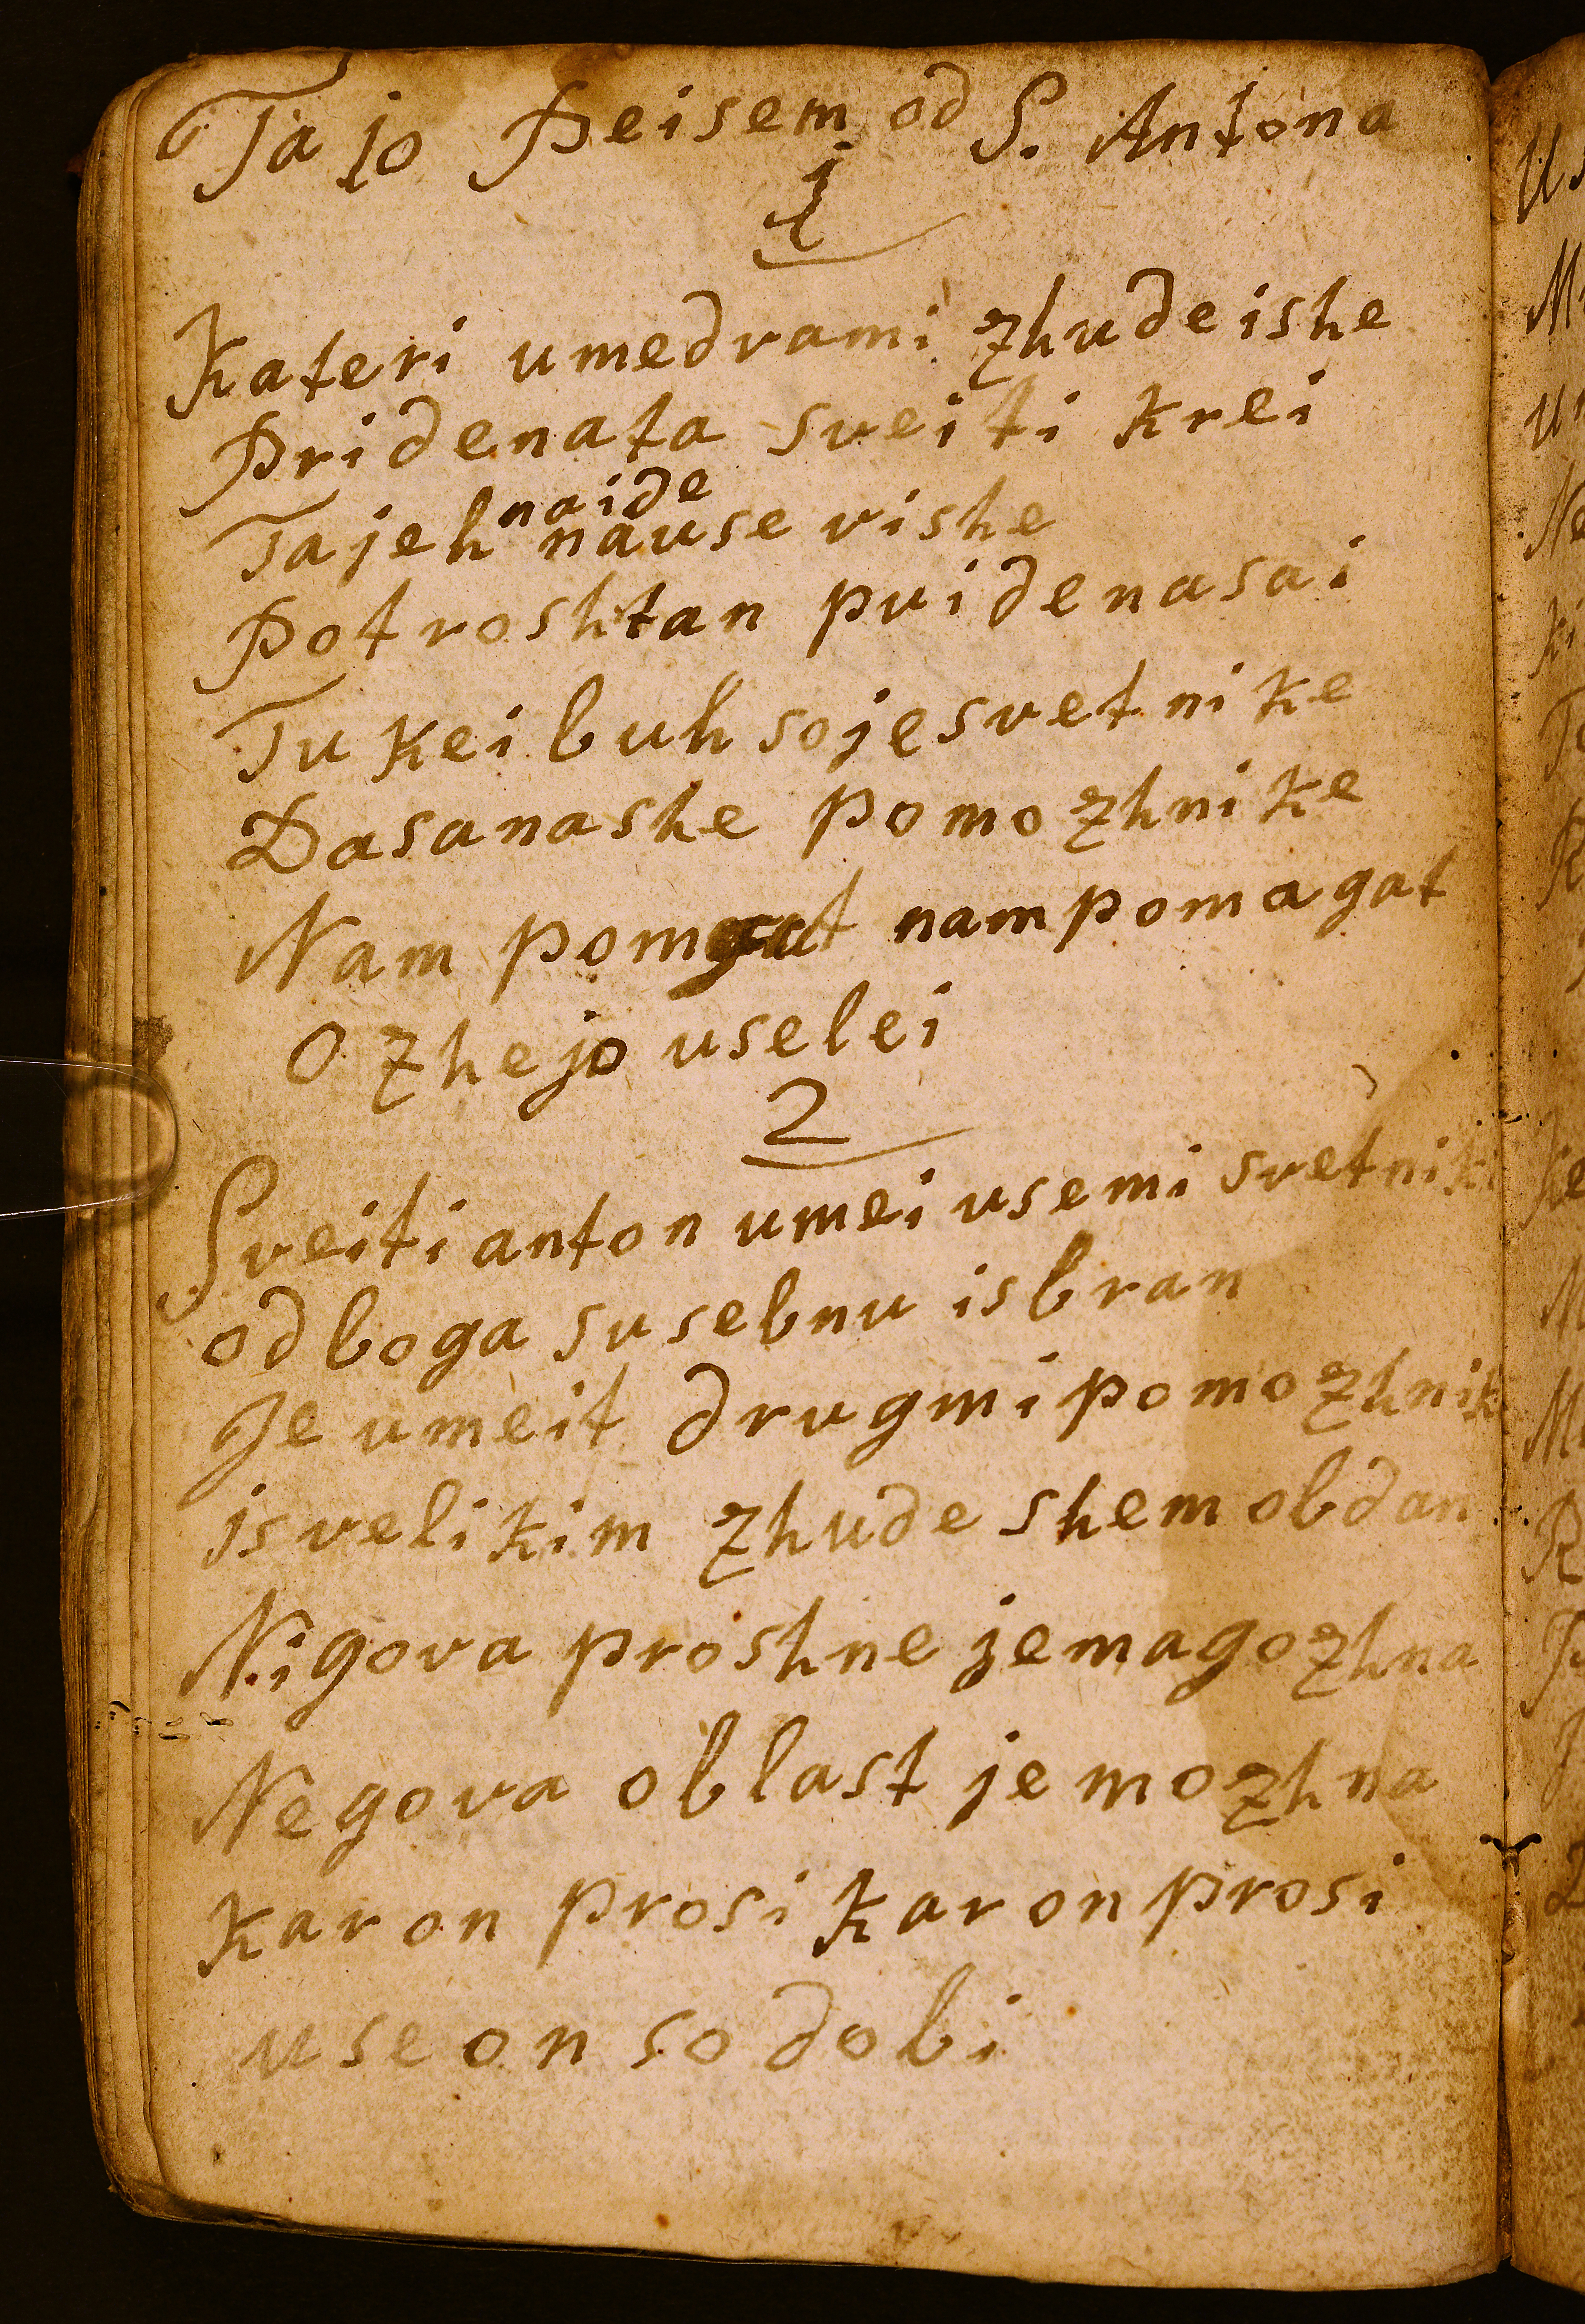 Ta jo Peisem od S. Antona
1
Kateri umedrami zhudeishe
Pridenata sveiti krei
naide
Tajeh nause vishe
Potroshtan pridenasai
Tukei buh sojesvetnike
Dasanashe pomozhnike
Nam pomgat nam pomagat
Ozhejo uselei
2
Sveiti anton umei usemi svetniki
od boga susebnu isbran
Je umeit drugmi pomozhnik
is velikim zhude shem obdan
Nigova proshne je magozhna
Negova oblast je mozhna
kar on prosi kar on prosi
use on so dobi